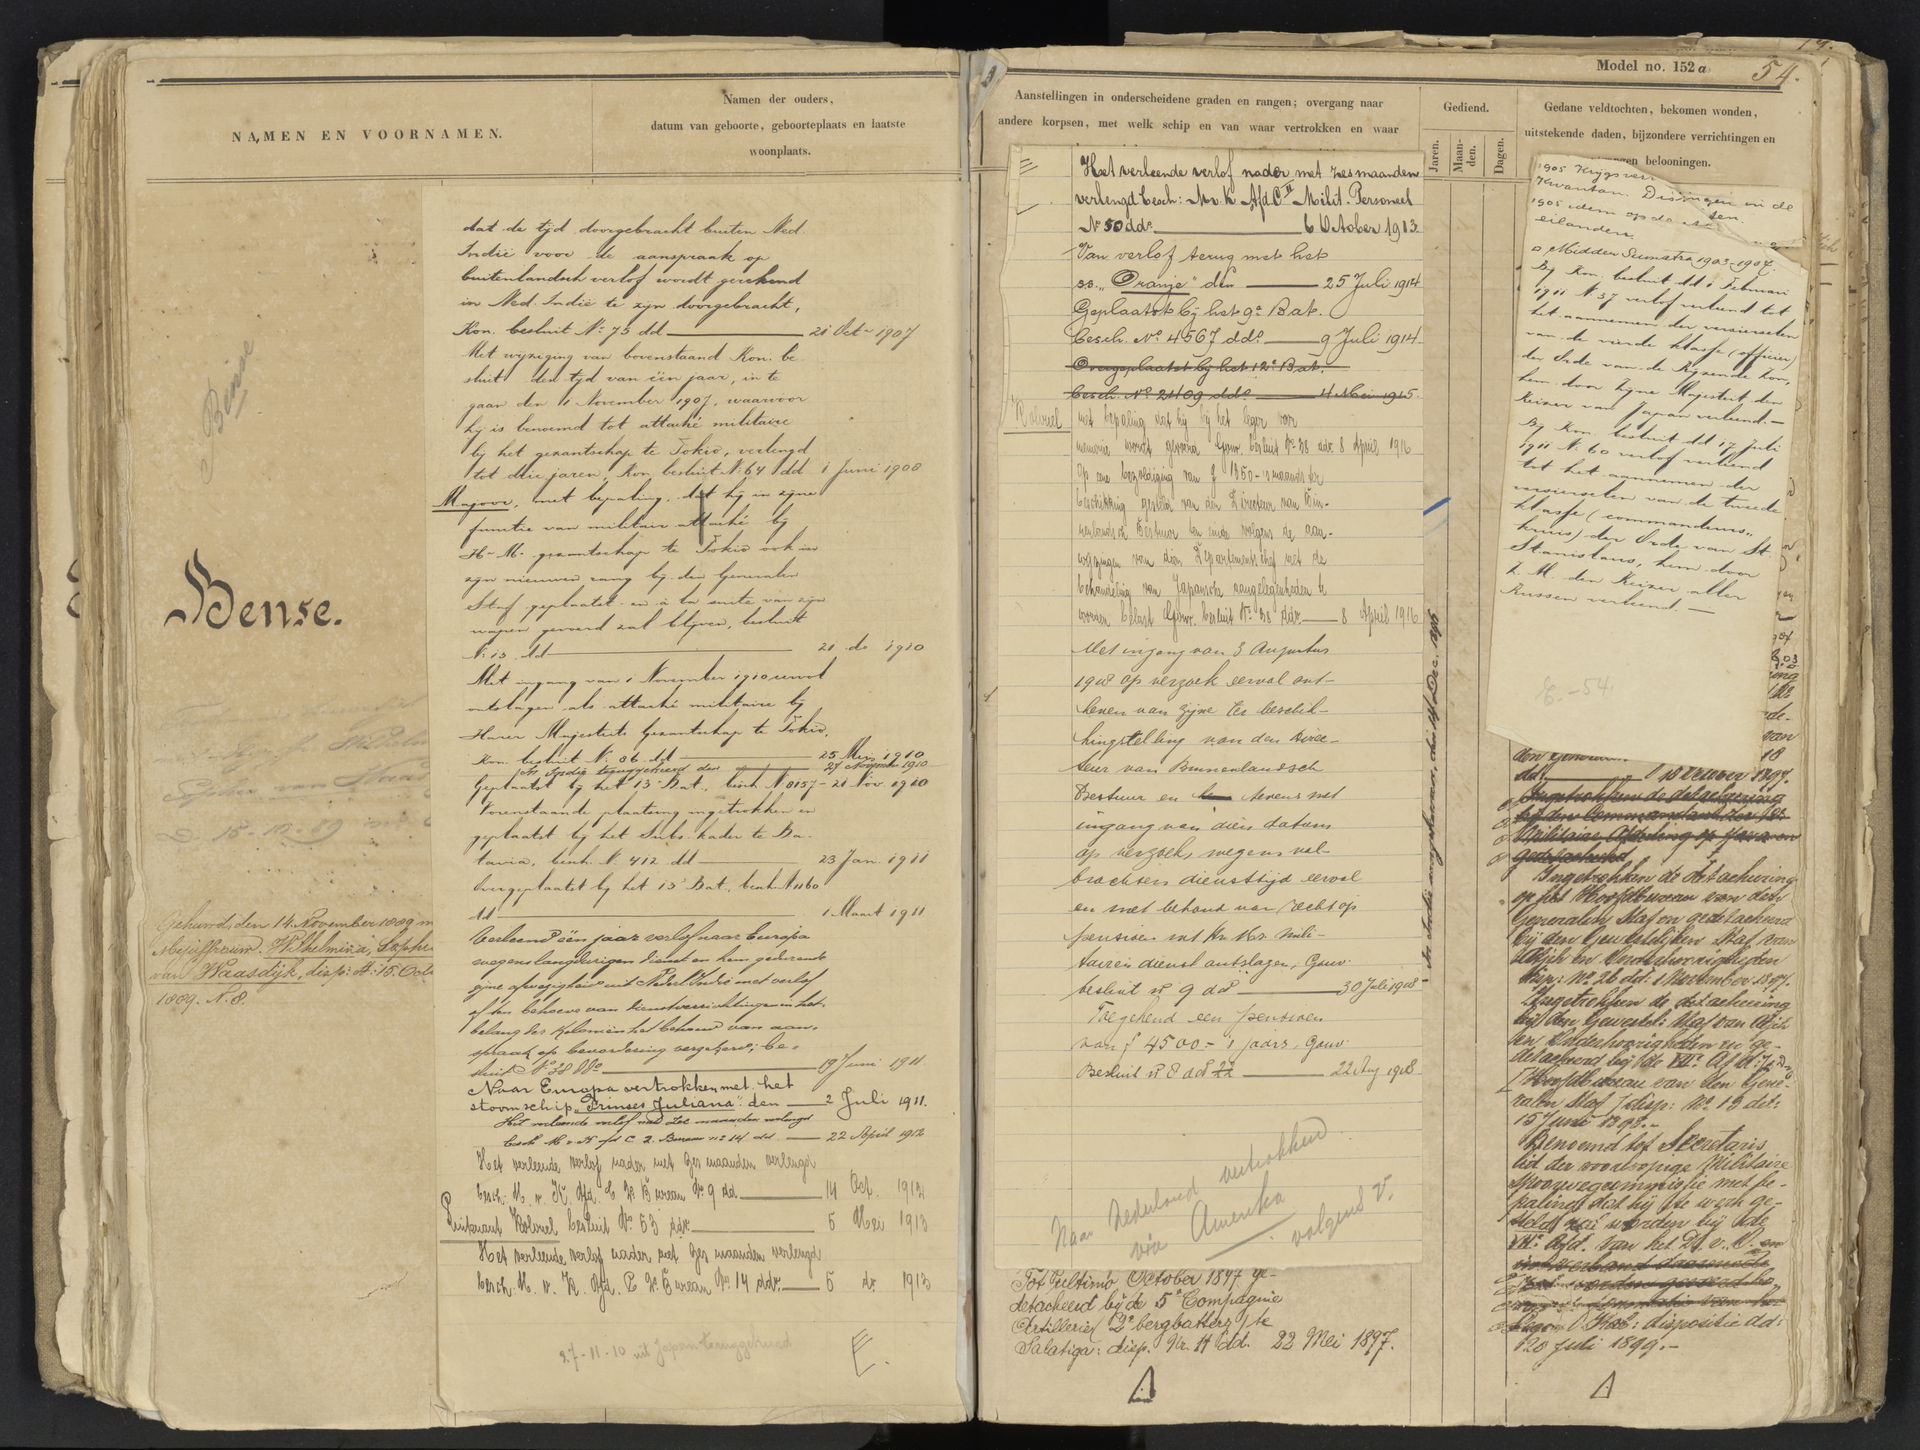 NAMEN EN VOORNAMEN.
Namen der ouders,
datum van geboorte, geboorteplaats en laatste
woonplaats.
Bense
Bense.
Gehuwd, den 14 November 1889 m
Mejuffrouw Wilhelmina, Sophia
van Waasdijk, disp: d: 15 Octo
1889. N. 8.
dat de tijd doorgebracht buiten Ned.
Indië voor de aanspraak op
buitenlandsch verlof wordt gerekend
in Ned. Indië te zijn doorgebracht,
Kon. besluit No 75 dd 21 Oct 1907
Met wijziging van bovenstaand Kon. be
sluit den tijd van één jaar, in te
gaan den 1 November 1907, waarvoor
hij is benoemd tot attaché militaire
bij het gezantschap te Tokio, verlengd
tot drie jaren, Kon. besluit No 64 dd 1 Juni 1908
Majoor, met bepaling, dat hij in zijne
functie van militair attaché bij
H. M. gezantschap te Tokio ook in
zijn nieuwen rang bij den Generalen
Staf geplaatst en à la suite van zijn
wapen gevoerd zal blijven, besluit
No 13 dd 21 do 1910
Met ingang van 1 November 1910 eervol
ontslagen als attaché militaire bij
Harer Majesteits Gezantschap te Tokio,
Kon. besluit No 36 dd 25 Mei 1910
In Indië teruggekeerd den 27 November 1910
Geplaatst bij het 13e Bat., besch No 8157 - 21 Nov. 1910
Vorenstaande plaatsing ingetrokken en
geplaatst bij het Subs. kader te Ba-
tavia, besch. No 412 dd 23 Jan 1911
Overgeplaatst bij het 13e Bat., besch No 1160
dd 1 Maart 1911.
Verleend één jaar verlof naar Europa
wegens langdurigen dienst en hem gedurende
zijne afwezigheid uit Nederl. Indië met verlof
of ten behoeve van dienstverrichtingen in het
belang der Koloniën het behoud van aan-
spraak op bevordering verzekerd; be-
sluit No 28 ddo 19 Juni 1911.
Naar Europa vertrokken met het
stoomschip "Prinses Juliana" den 2 Juli 1911.
Het verleende verlof met zes maanden verlengd
besch M v K afd C 2e Bureau no 14 dd 22 April 1912
Het verleende verlof nader met zes maanden verlengd
besch. M. v. K. Afd. C 2e Bureau No 9 dd 14 Oct. 1912
Luitenant Kolonel besluit No 53 ddo 5 Mei 1913
Het verleende verlof nader met zes maanden verlengd
besch. M. v. K. Afd. C 2e Bureau No 14 ddo 5 do 1913
27-11-10 uit Japan teruggekeerd
E.
Model no. 152a
54.
Aanstellingen in onderscheidene graden en rangen; overgang naar
andere korpsen, met welk schip en van waar vertrokken en waar
Gediend.
Jaren.
Maan-
den.
Dagen.
Gedane veldtochten, bekomen wonden,
uitstekende daden, bijzondere verrichtingen en
belooningen.
Het verleende verlof nader met zes maanden
verlengd besch: M. v. K Afd C II Milit. Personeel
No 50 ddo 6 October 1913.
Van verlof terug met het
s.s. "Oranje" den 25 Juli 1914
Geplaatst bij het 9e Bat.
besch. No 4567 ddo 9 Juli 1914
Overgeplaatst bij het 12e Bat.
besch. No 2409 ddo 4 Mei 1915.
Kolonel met bepaling dat hij bij het leger voor
memorie wordt gevoerd Gouv. besluit No 38 ddo 8 April 1916
Op eene bezoldiging van f 1350- 's maands ter
beschikking gesteld van den Directeur van Bin-
nenlandsch Bestuur en einde volgens de aan-
wijzingen van dien Departementschef met de
behandeling van Japansche aangelegenheden te
worden belast Gouv. besluit No 38 ddo 8 April 1916
Met ingang van 3 Augustus
1918 op verzoek eervol ont-
heven van zijne ter beschik-
kingstelling van den Direc-
teur van Binnenlandsch
Bestuur en tevens met
ingang van dien datum
op verzoek, wegens vol-
brachten diensttijd eervol
en met behoud van recht op
pensioen uit Hr. Ms. mili-
tairen dienst ontslagen, Gouv.
besluit no 9 ddo 30 Juli 1918
Toegekend een pensioen
van f 4500 - 's jaars, Gouv.
Besluit no 8 dd 22 22 Aug 1918
Naar Nederland vertrokken
via Amerika
volgens V.
Tot Ultimo October 1897 ge-
detacheerd bij de 5e Compagnie
Artillerie (2e bergbatterij) te
Salatiga: disp. Nr. 4 dd. 22 Mei 1897.
1905 Krijgsver
Kwantan. Districten in de
1905 idem op de
eilanden.
o Midden Sumatra 1903-1907.
Bij Kon. besluit dd 1 Februari
1911 No 37 verlof verleend tot
het aannemen der versierselen
van de vierde klasse (officier)
der Orde van de Rijzende Zon,
hem door Zijne Majesteit den
Keizer van Japan verleend. -
Bij Kon. besluit dd 17 Juli
1911 No 60 verlof verleend
tot het aannemen der
versierselen van de tweede
klasse (commandeurs-
kruis) der Orde van St.
Stanislaus, hem door
Z. M. den Keizer aller
Russen verleend. -
E.-54.
dd 1 October 1897.
Ingetrokken de detacheering
Ingetrokken de detacheering
op het Hoofdbureau van den
Generalen Staf en gedetacheerd
bij den Gewestelijken Staf van
Atjeh en Onderhoorigheden
disp: No 26 dd: 1 November 1897.
Ingetrokken de detacheering
bij den Gewestel: Staf van Atjeh
en Onderhoorigheden en ge-
detacheerd bij de VIIe Afd:
Hoofdbureau van den Gene-
ralen Staf, disp: No 13 dd:
15 Juni 1898.-
Benoemd tot Secretaris
lid der voorloopige Militaire
Spoorwegcommissie met be-
paling dat hij te werk ge-
steld zal worden bij de
VIIe Afd. van het D. v. O. en
20 Juli 1899.-